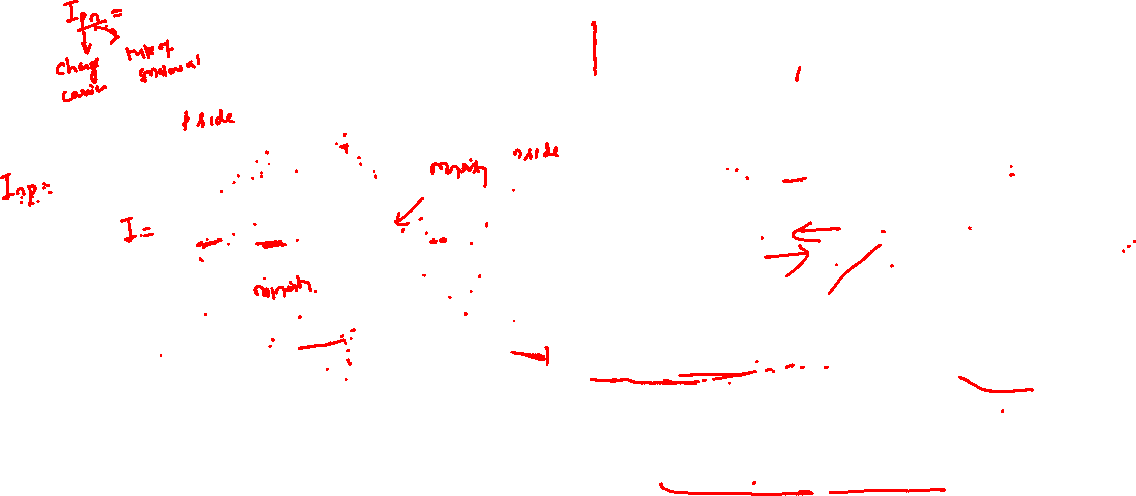 Ipn=
charge
carrier
type of
material
p side
n side
minority
Inp=
I=
minority